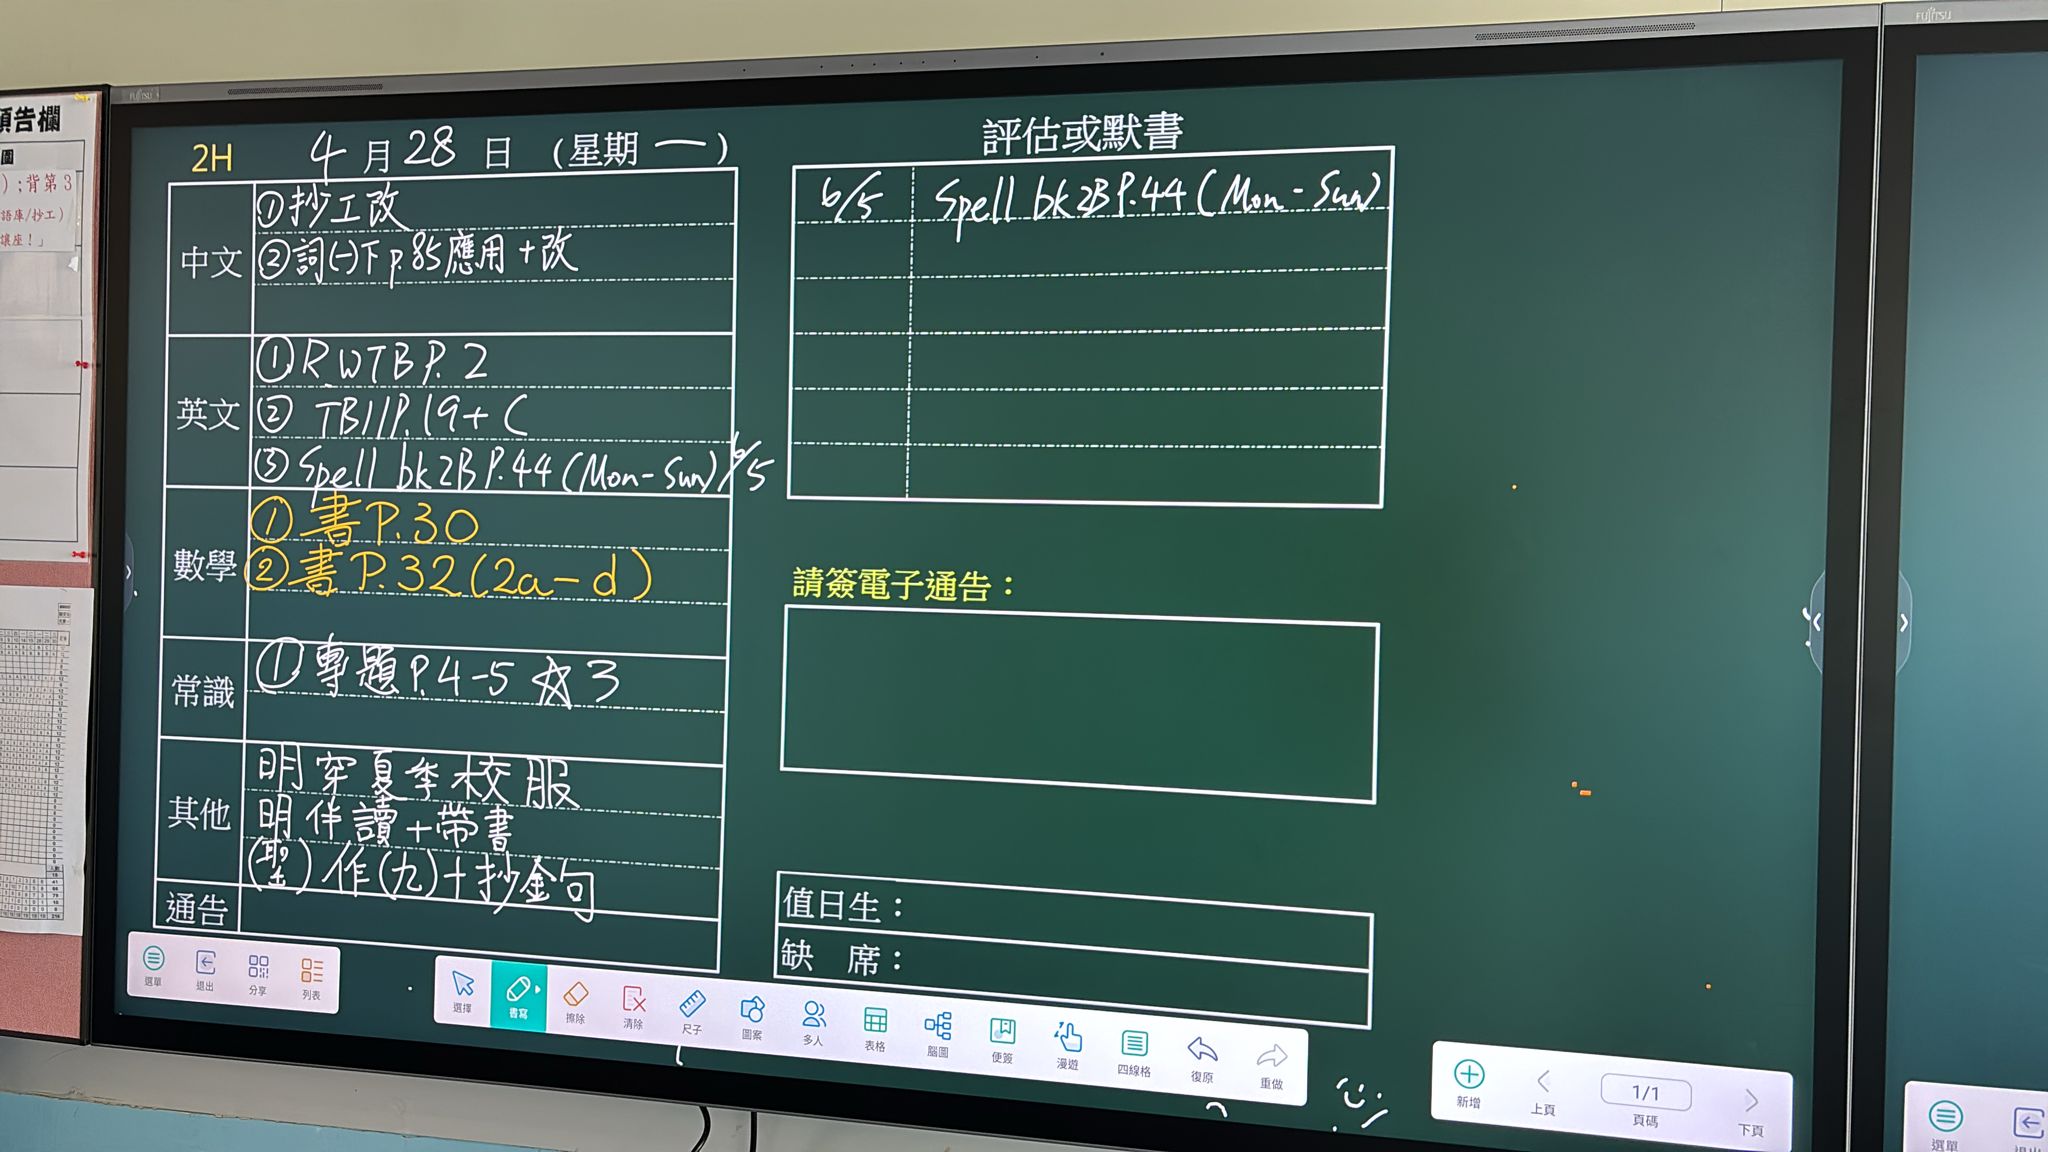 FUJITSU
FUJITSU
預告欄
);背第3
語庫/抄工)
讓座！」
2H 4月28日 (星期一)
中文
①抄工改
②詞(一)下p.85應用+改
英文
①R.WTB P.2
② TB11P.19+C
③Spell bk2B P.44(Mon-Sun) 6/5
數學
①書P.30
②書P.32(2a-d)
常識
①專題P.4-5☆3
其他
明穿夏季校服
明伴讀+帶書
(聖)作(九)+抄金句
通告
評估或默書
6/5 Spell bk2B P.44(Mon-Sun)
請簽電子通告：
值日生：
缺 席：
選單 退出 分享 列表
選擇 書寫 擦除 清除 尺子 圖案 多人 表格 腦圖 便簽 漫遊 四線格 復原 重做
新增 上頁 1/1 頁碼 下頁
選單 退出